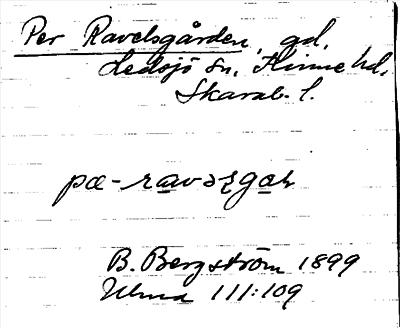 Per Ravelsgården, gd,
Ledsjö sn, Kinne hd,
Skarab. l.
pœ-ravəʒgaɳ
B. Bergström 1899
Ulma 111:109